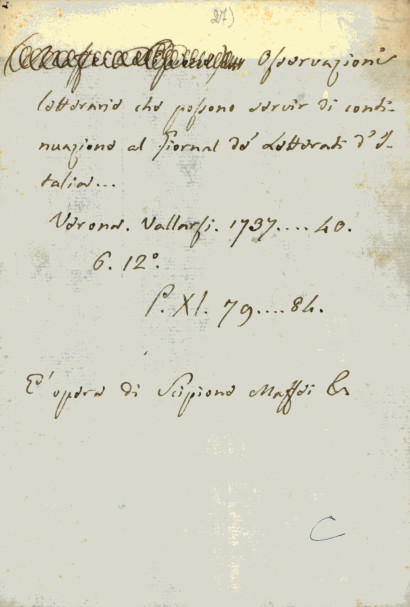 27)
Osservazioni
letterarie che possono servir di conti-
nuazione al Giornal de' Letterati d'I-
talia...
Verona. Vallarsi. 1737....40.
6. 12°.
P. XI. 79....84.
E' opera di Scipione Maffei
C